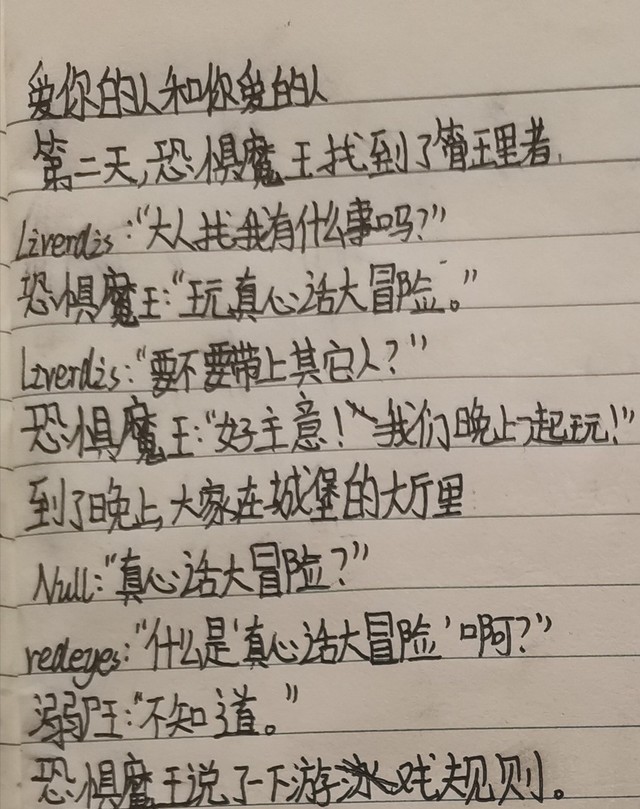 爱你的人和你爱的人
第二天,恐惧魔王找到了管理者.
Liverdis:“大人找我有什么事吗?”
恐惧魔王:“玩真心话大冒险。”
Liverdis:“要不要带上其它人?”
恐惧魔王:“好主意!我们晚上一起玩!”
到了晚上,大家在城堡的大厅里
Null:“真心话大冒险?”
redeyes:“什么是‘真心话大冒险’啊?”
溺尸王:“不知道。”
恐惧魔王说了一下游戏规则。